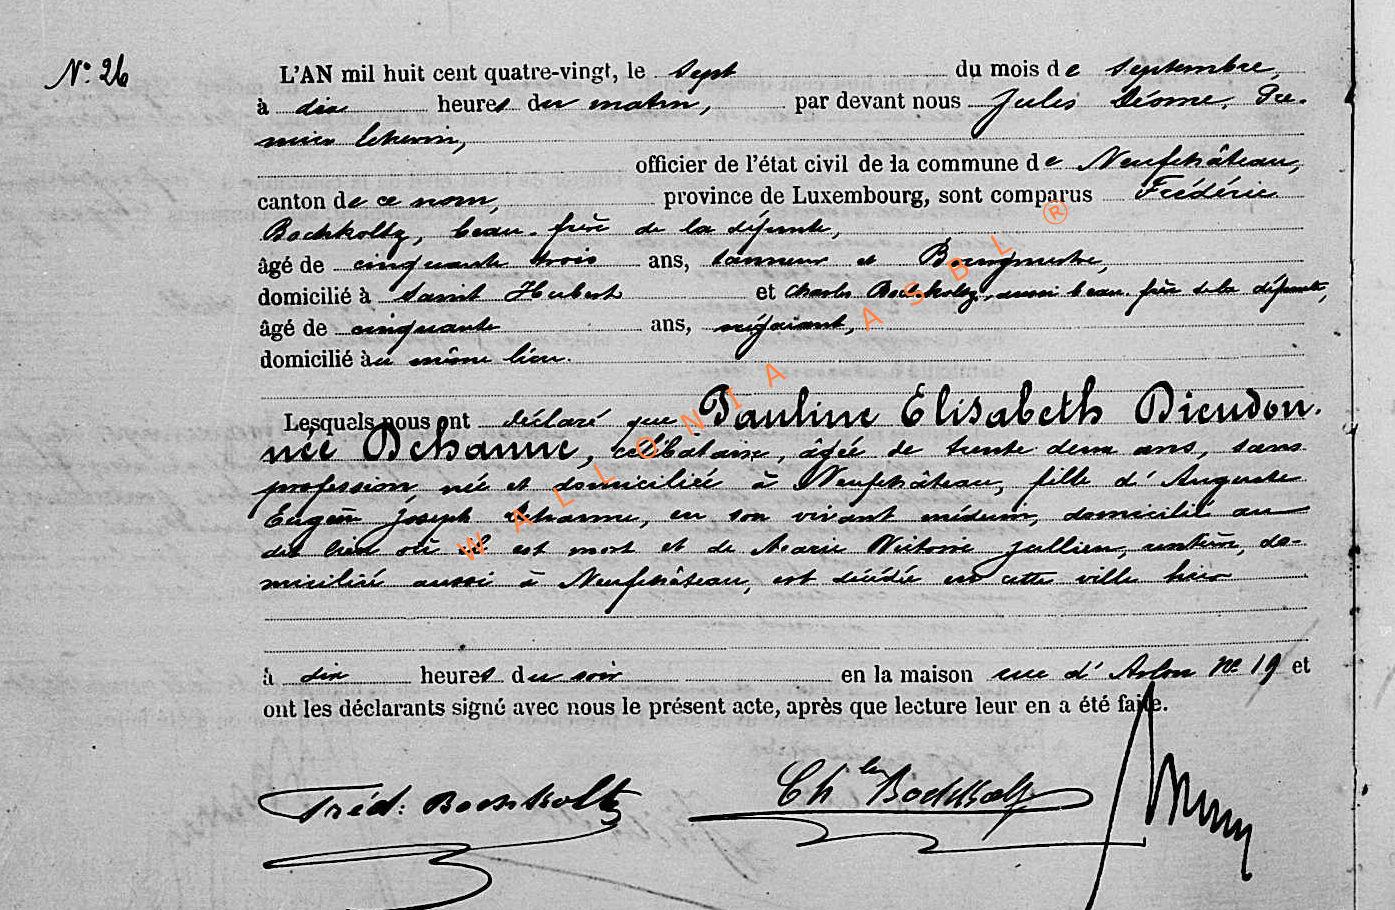 N° 26
L'AN mil huit cent quatre-vingt, le sept du mois de septembre,
à dix heures du matin, par devant nous Jules Déome, Pre-
mier Echevin,
officier de l'état civil de la commune de Neufchâteau,
canton de ce nom, province de Luxembourg, sont comparus Frédéric
Bochkoltz, beau-frère de la défunte,
âgé de cinquante trois ans, tanneur et Bourgmestre,
domicilié à Saint Hubert et Charles Bochkoltz, aussi beau-frère de la défunte,
âgé de cinquante ans, négociant,
domicilié au même lieu.
Lesquels nous ont déclaré que Pauline Elisabeth Dieudon-
née Dehanne, célibataire, âgée de trente deux ans, sans
profession, née et domiciliée à Neufchâteau, fille d'Auguste
Eugène Joseph Dehanne, en son vivant médecin, domicilié au
dit lieu où il est mort et de Marie Victoire Jullien, rentière, do-
miciliée aussi à Neufchâteau, est décédée en cette ville hier
à dix heures du soir en la maison rue d'Arlon N° 19 et
ont les déclarants signé avec nous le présent acte, après que lecture leur en a été faite.
Fréd: Bochkoltz Ch les Bochkoltz
WALLONIA ASBL ®